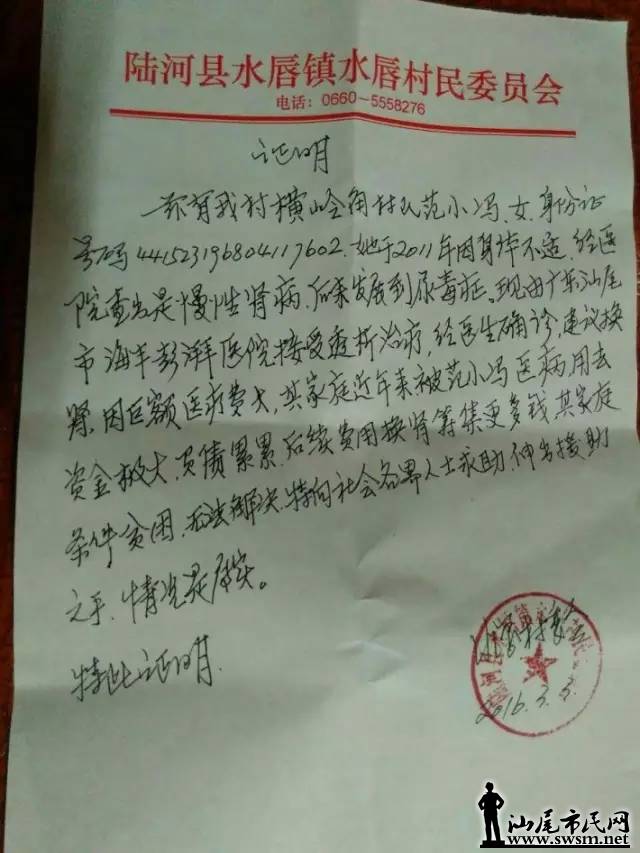 陆河县水唇镇水唇村民委员会
电话：0660－5558276
证明
兹有我村横岭角村民范小冯、女、身份证
号码441523196804117602．她于2011年因身体不适、经医
院查出是慢性肾病、后来发展到尿毒症、现由广东汕尾
市海丰彭湃医院接受透析治疗，经医生确诊，建议换
肾、因巨额医疗费大，其家庭近年来被范小冯医病，用去
资金极大、负债累累、后续费用换肾筹集更多钱其家庭
条件贫困、无法解决、特向社会各界人士求助、伸出援助
之手、情况是属实。
特此证明．
水唇村委会
2016.3.3.
汕尾市民网
www.swsm.net